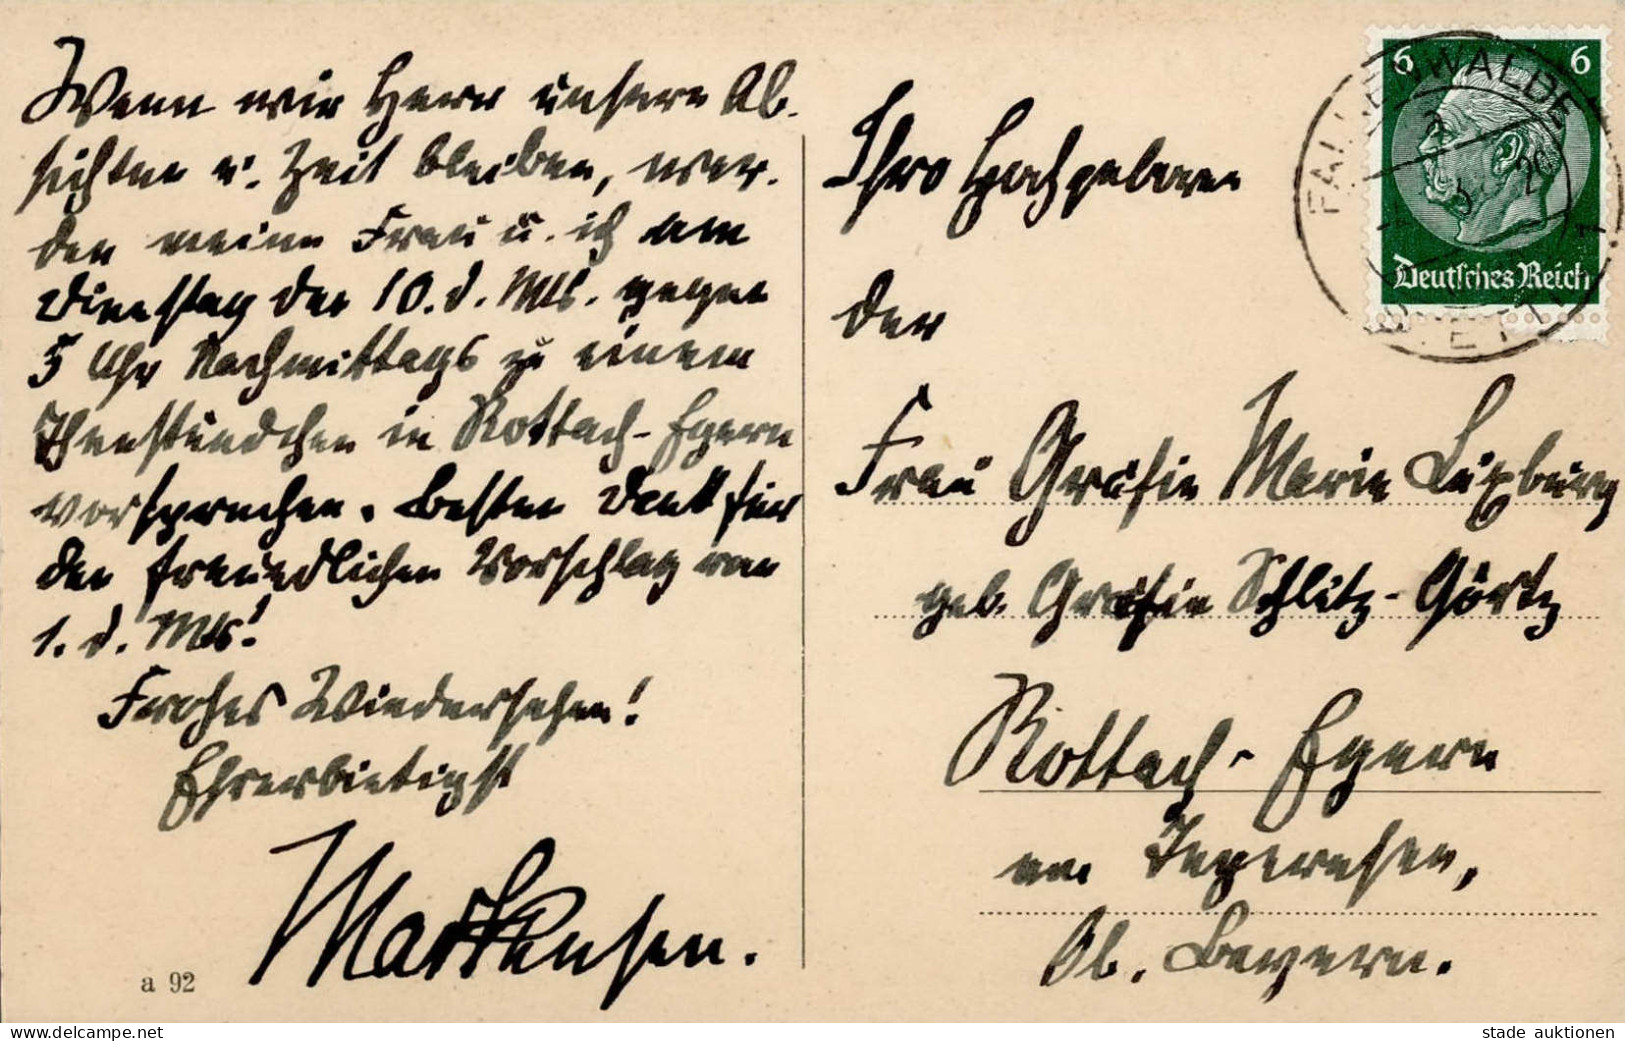 Wenn wir Herr unserer Ab-
sichten u. Zeit bleiben, wer-
den meine Frau u. ich am
Dienstag den 10. d. Mts. gegen
5 Uhr Nachmittags zu einem
Theestündchen in Rottach-Egern
vorsprechen. Besten Dank für
den freundlichen Vorschlag vom
1. d. Mts!
Frohes Wiedersehen!
Ehrerbietigst
Mackensen.
a 92
Ihro Hochgeboren
der
Frau Gräfin Marie Luxburg
geb. Gräfin Schlitz-Görtz
Rottach-Egern
am Tegernsee,
Ob. Bayern.
6 6
Deutsches Reich
FALKENWALDE
www.delcampe.net
stade auktionen